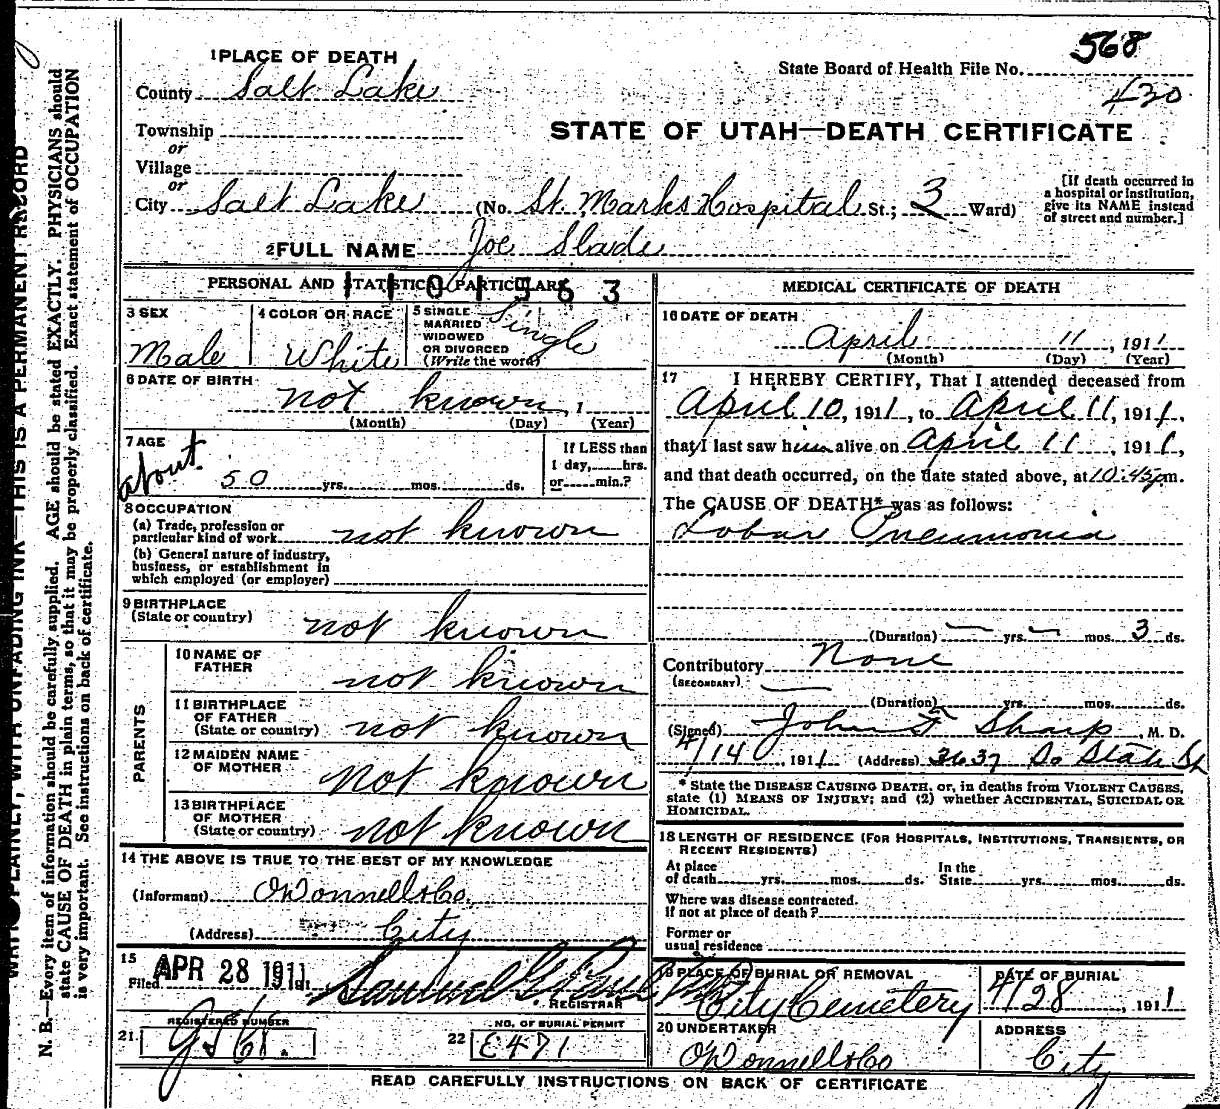 568
State Board of Health File No.
430
1 PLACE OF DEATH
County Salt Lake
STATE OF UTAH—DEATH CERTIFICATE
Township
or
Village
or
City Salt Lake (No. St. Marks Hospital St.; 3 Ward)
[If death occurred in
a hospital or institution,
give its NAME instead
of street and number.]
2 FULL NAME Joe Slade
PERSONAL AND STATISTICAL PARTICULARS
3 SEX
Male
4 COLOR OR RACE
White
5 SINGLE
MARRIED
WIDOWED
OR DIVORCED
(Write the word)
Single
6 DATE OF BIRTH
not known, 1
(Month) (Day) (Year)
7 AGE
about 50 yrs. mos. ds.
If LESS than
1 day, hrs.
or min.?
8 OCCUPATION
(a) Trade, profession or
particular kind of work not known
(b) General nature of industry,
business, or establishment in
which employed (or employer)
9 BIRTHPLACE
(State or country) not known
PARENTS
10 NAME OF
FATHER not known
11 BIRTHPLACE
OF FATHER
(State or country) not known
12 MAIDEN NAME
OF MOTHER not known
13 BIRTHPLACE
OF MOTHER
(State or country) not known
14 THE ABOVE IS TRUE TO THE BEST OF MY KNOWLEDGE
(Informant) O'Donnell & Co.
(Address) City
15
Filed APR 28 1911
REGISTRAR
REGISTERED NUMBER
21.
NO. OF BURIAL PERMIT
22 E471
MEDICAL CERTIFICATE OF DEATH
16 DATE OF DEATH
April 11, 1911
(Month) (Day) (Year)
17 I HEREBY CERTIFY, That I attended deceased from
April 10, 1911, to April 11, 1911,
that I last saw him alive on April 11, 1911,
and that death occurred, on the date stated above, at 10:45 pm.
The CAUSE OF DEATH* was as follows:
Lobar Pneumonia
(Duration) — yrs. — mos. 3 ds.
Contributory None
(SECONDARY)
(Duration) yrs. mos. ds.
(Signed) John F Sharp, M. D.
4/14, 1911 (Address) 3637 So State St
* State the DISEASE CAUSING DEATH, or, in deaths from VIOLENT CAUSES,
state (1) MEANS OF INJURY; and (2) whether ACCIDENTAL, SUICIDAL OR
HOMICIDAL.
18 LENGTH OF RESIDENCE (FOR HOSPITALS, INSTITUTIONS, TRANSIENTS, OR
RECENT RESIDENTS)
At place
of death yrs. mos. ds.
In the
State yrs. mos. ds.
Where was disease contracted.
if not at place of death?
Former or
usual residence
19 PLACE OF BURIAL OR REMOVAL
City Cemetery
DATE OF BURIAL
4/28, 1911
20 UNDERTAKER
O'Donnell & Co
ADDRESS
City
READ CAREFULLY INSTRUCTIONS ON BACK OF CERTIFICATE
WRITE PLAINLY, WITH UNFADING INK—THIS IS A PERMANENT RECORD
N. B.—Every item of information should be carefully supplied. AGE should be stated EXACTLY. PHYSICIANS should
state CAUSE OF DEATH in plain terms, so that it may be properly classified. Exact statement of OCCUPATION
is very important. See instructions on back of certificate.